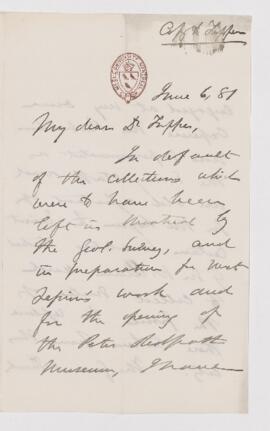 Copy to Tupper
June 6, 81
My dear Dr Tupper,
In default
of the collections which
were to have been
left in Montreal by
the Geol. Survey, and
in preparation for next
Session's work and
for the opening of
the Peter Redpath
Museum, I have